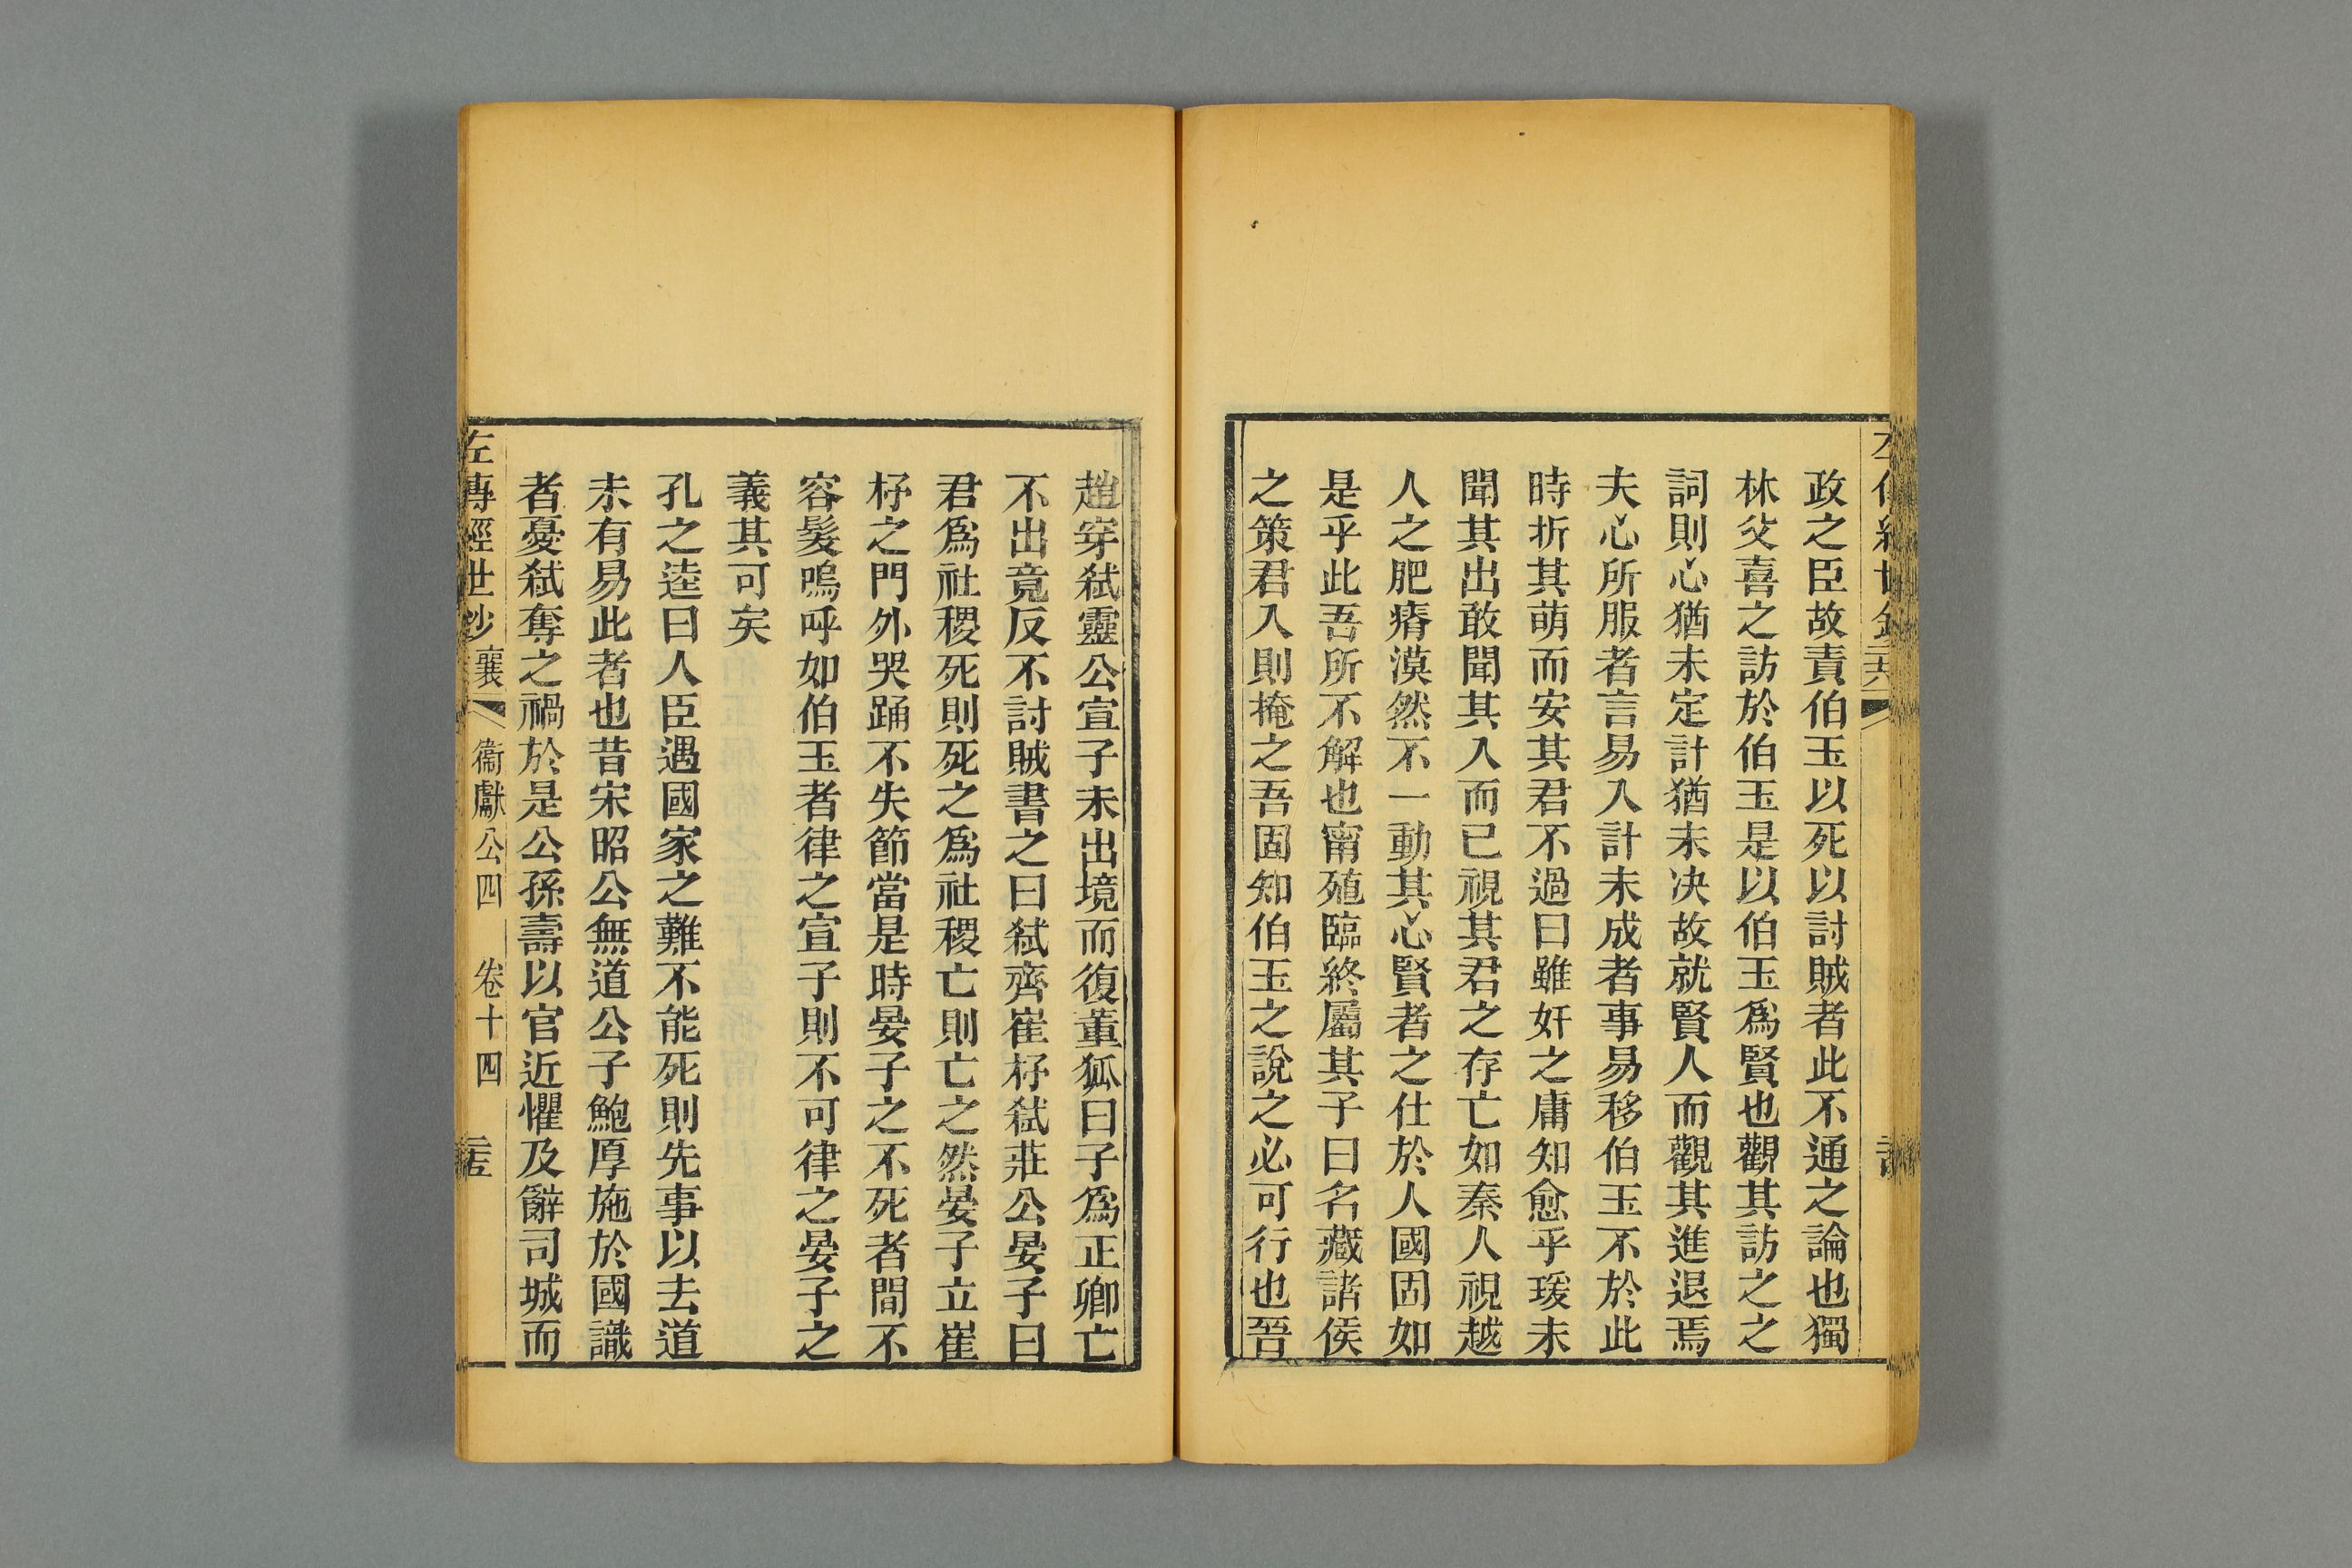 政之臣故責伯玉以死以討賊者此不通之論也獨
林父喜之訪於伯玉是以伯玉爲賢也觀其訪之之
詞則心猶未定計猶未決故就賢人而觀其進退焉
夫心所服者言易入計未成者事易移伯玉不於此
時折其萌而安其君不過曰雖奸之庸知愈乎瑗未
聞其出敢聞其入而已視其君之存亡如秦人視越
人之肥瘠漠然不一動其心賢者之仕於人國固如
是乎此吾所不解也甯殖臨終屬其子曰名藏諸侯
之策君入則掩之吾固知伯玉之說之必可行也晉
趙穿弑靈公宣子未出境而復董狐曰子爲正卿亡
不出竟反不討賊書之曰弑齊崔杼弑莊公晏子曰
君爲社稷死則死之爲社稷亡則亡之然晏子立崔
杼之門外哭踊不失節當是時晏子之不死者間不
容髮嗚呼如伯玉者律之宣子則不可律之晏子之
義其可矣
孔之逵曰人臣遇國家之難不能死則先事以去道
未有易此者也昔宋昭公無道公子鮑厚施於國識
者憂弑奪之禍於是公孫壽以官近懼及辭司城而
左傳經世鈔 襄 衞獻公四 卷十四